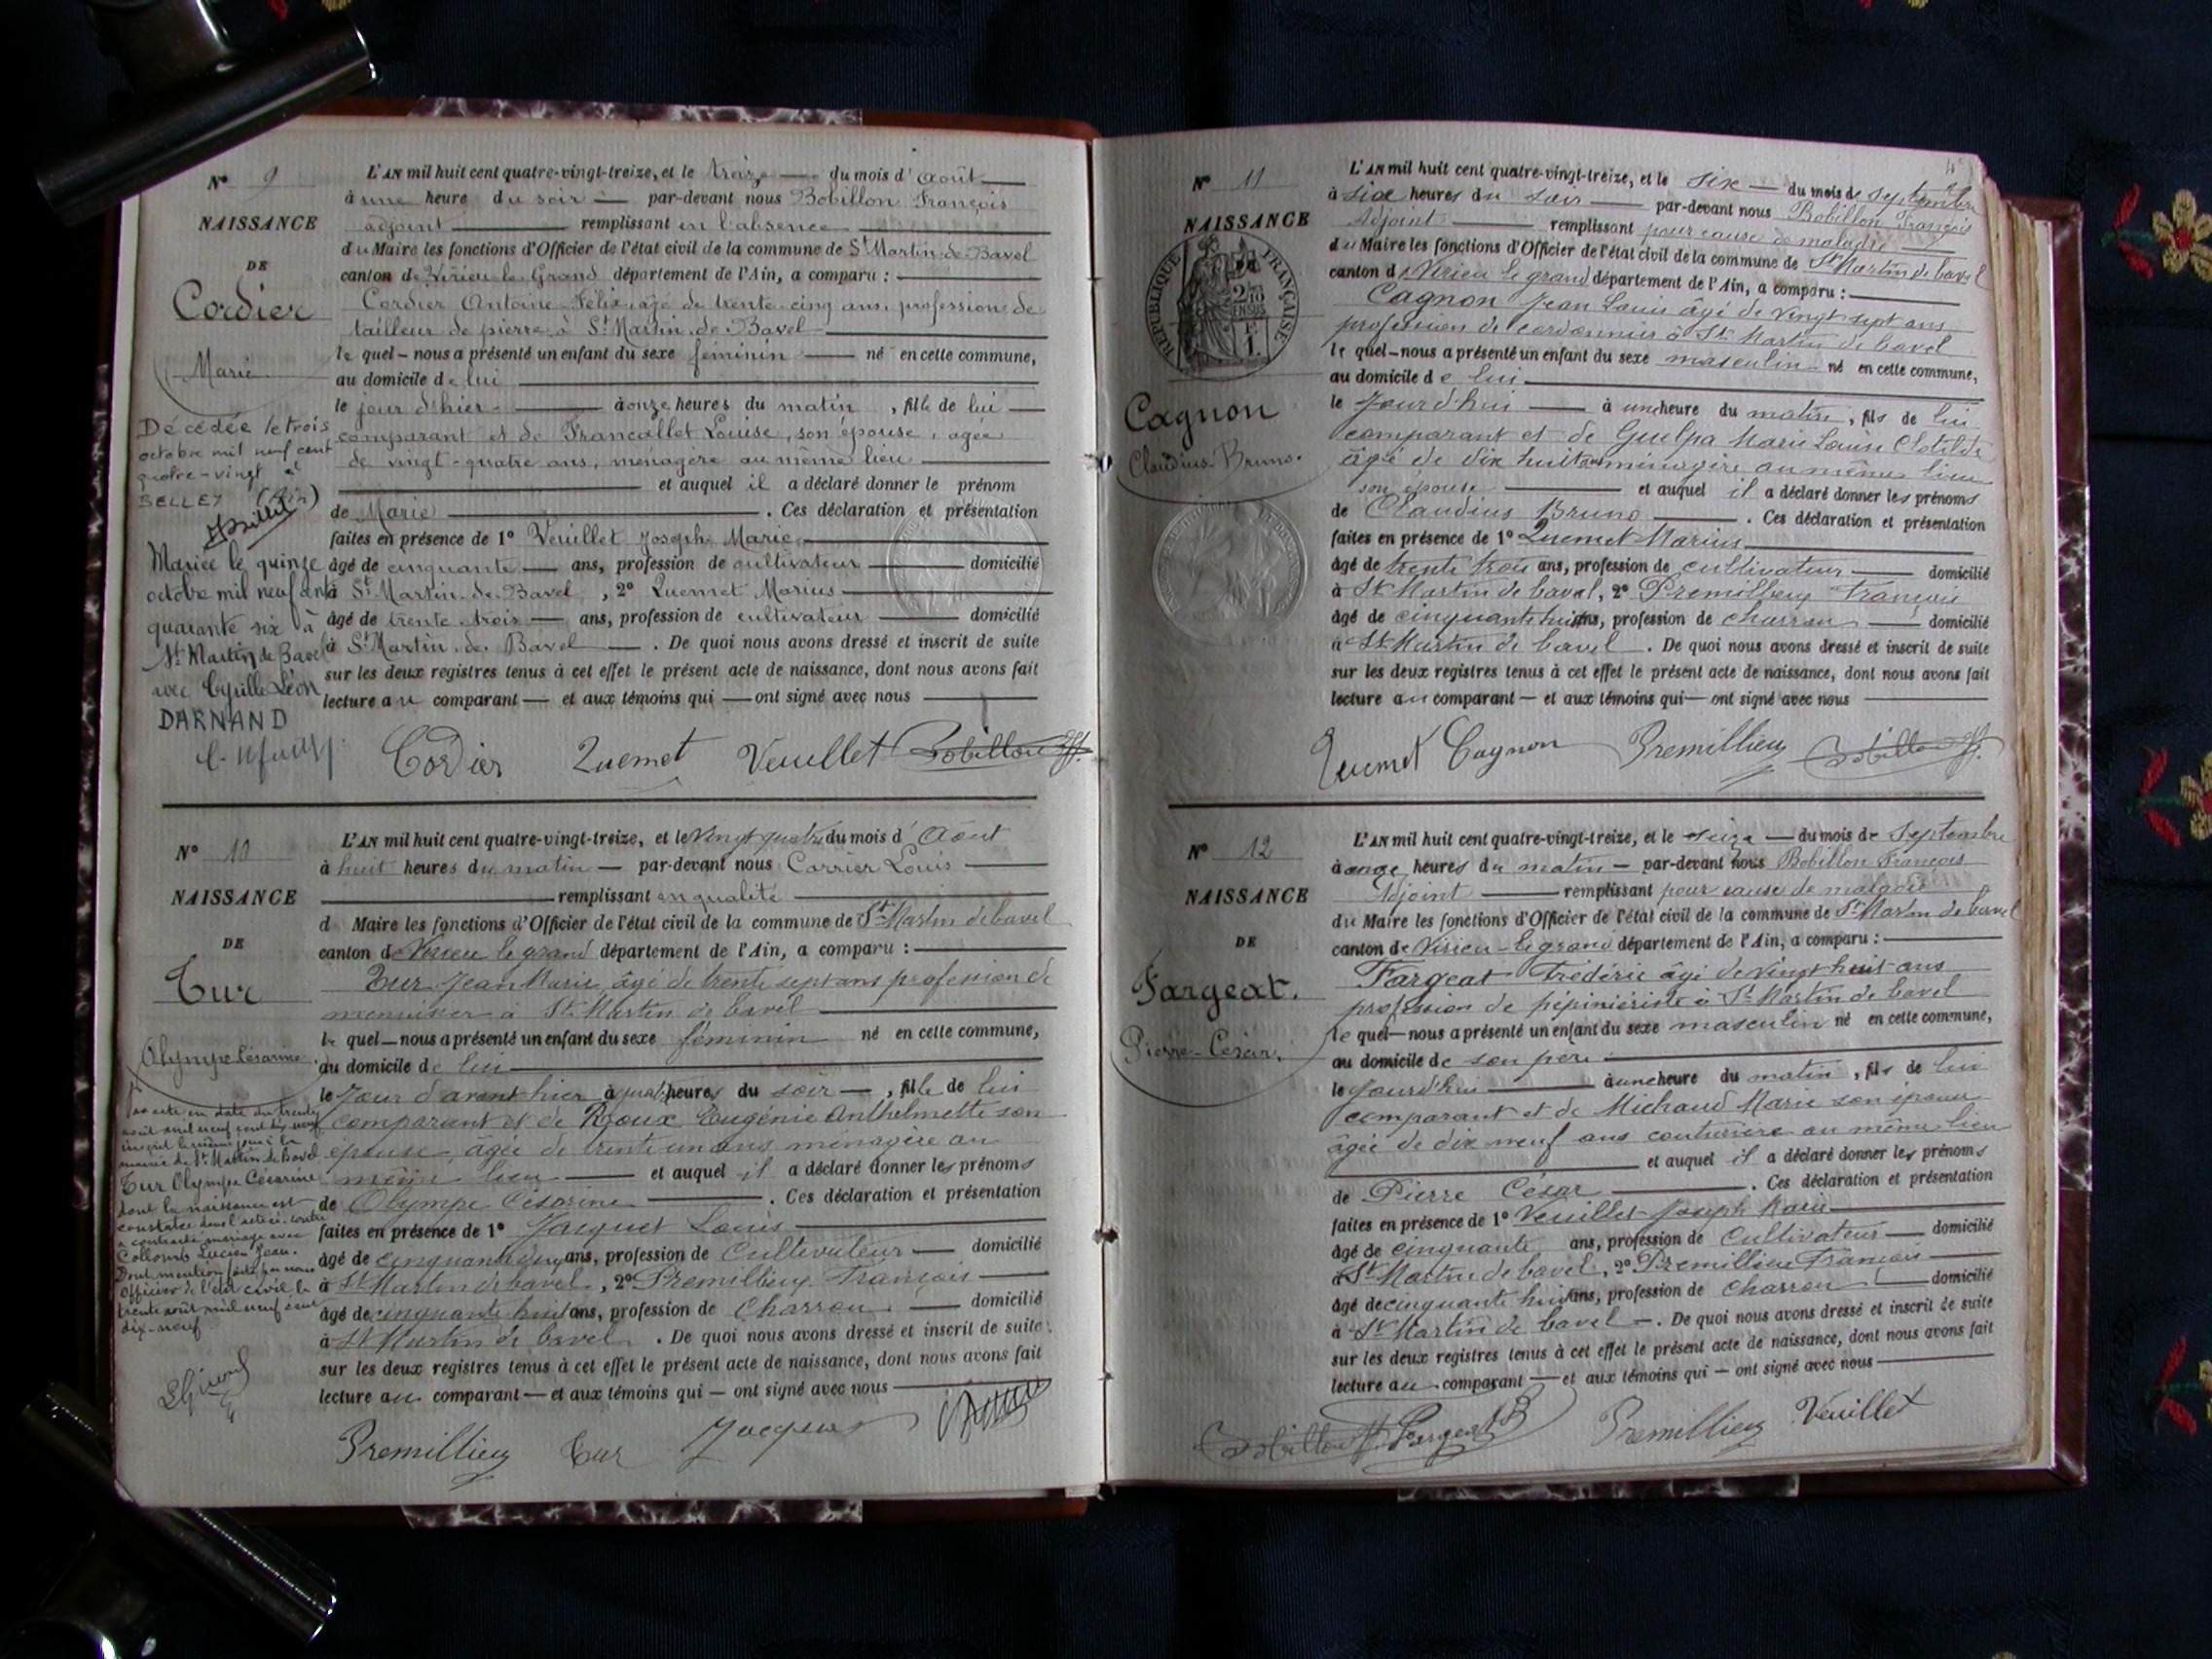 N° 9
NAISSANCE
DE
Cordier
Marie
Décédée le trois
octobre mil neuf cent
quatre-vingt à
BELLEY (Ain)
Mariée le quinze
octobre mil neuf cent
quarante six à
St Martin de Bavel
avec Cyrille Léon
DARNAND
L'AN mil huit cent quatre-vingt-treize, et le treize du mois d'août
à une heure du soir par-devant nous Bobillon François
adjoint remplissant en l'absence
du Maire les fonctions d'Officier de l'état civil de la commune de St Martin-de-Bavel
canton de Virieu le Grand département de l'Ain, a comparu :
Cordier Antoine Félix, âgé de trente-cinq ans, profession de
tailleur de pierre à St Martin-de-Bavel
le quel nous a présenté un enfant du sexe féminin né en cette commune,
au domicile de lui
le jour d'hier à onze heures du matin, fille de lui
comparant et de Francallet Louise, son épouse, agée
de vingt-quatre ans, ménagère au même lieu
et auquel il a déclaré donner le prénom
de Marie. Ces déclaration et présentation
faites en présence de 1° Veuillet Joseph Marie
âgé de cinquante ans, profession de cultivateur domicilié
à St Martin-de-Bavel, 2° Quemet Marius
âgé de trente-trois ans, profession de cultivateur domicilié
à St Martin-de-Bavel. De quoi nous avons dressé et inscrit de suite
sur les deux registres tenus à cet effet le présent acte de naissance, dont nous avons fait
lecture au comparant et aux témoins qui ont signé avec nous
Cordier Quemet Veuillet Bobillon
N° 10
NAISSANCE
DE
Tur
Olympe Césarine
acte en date du trente
août mil neuf cent dix-neuf
inscrit le même jour à la
mairie de St Martin de Bavel
Tur Olympe Césarine
dont la naissance est
constatée dans l'acte ci-contre
a contracté mariage avec
Collomb Lucien Jean.
Dont mention faite par nous
officier de l'état civil le
trente août mil neuf cent
dix-neuf
L'AN mil huit cent quatre-vingt-treize, et le vingt quatre du mois d'Août
à huit heures du matin par-devant nous Carrier Louis
remplissant en qualité
d Maire les fonctions d'Officier de l'état civil de la commune de St Martin de bavel
canton de Virieu le grand département de l'Ain, a comparu :
Tur Jean Marie, âgé de trente sept ans profession de
menuisier à St Martin de bavel
le quel nous a présenté un enfant du sexe féminin né en cette commune,
au domicile de lui
le Jour d'avant hier à quatre heures du soir, fille de lui
comparant et de Roux Eugénie Anthelmette son
épouse, âgée de trente un ans ménagère au
même lieu et auquel il a déclaré donner les prénoms
de Olympe Césarine. Ces déclaration et présentation
faites en présence de 1° Jacquet Louis
âgé de cinquante ans, profession de Cultivateur domicilié
à St Martin de bavel, 2° Premillieu François
âgé de cinquante huit ans, profession de Charron domicilié
à St Martin de bavel. De quoi nous avons dressé et inscrit de suite
sur les deux registres tenus à cet effet le présent acte de naissance, dont nous avons fait
lecture au comparant et aux témoins qui ont signé avec nous
Premillieu Tur Jacquet
4
N° 11
NAISSANCE
RÉPUBLIQUE FRANÇAISE
2/10 EN SUS
1 F.
Cagnon
Claudius-Bruno.
L'AN mil huit cent quatre-vingt-treize, et le six du mois de septembre
à six heures du soir par-devant nous Bobillon François
Adjoint remplissant pour cause de maladie
du Maire les fonctions d'Officier de l'état civil de la commune de St Martin de bavel
canton de Virieu le grand département de l'Ain, a comparu :
Cagnon Jean Louis âgé de vingt sept ans
profession de cordonnier à St Martin de bavel
le quel nous a présenté un enfant du sexe masculin né en cette commune,
au domicile de lui
le Jourd'hui à une heure du matin, fils de lui
comparant et de Guelpa Marie Louise Clotilde
âgé de dix huit ans ménagère au même lieu
son épouse et auquel il a déclaré donner les prénoms
de Claudius Bruno. Ces déclaration et présentation
faites en présence de 1° Quemet Marius
âgé de trente trois ans, profession de cultivateur domicilié
à St Martin de bavel, 2° Premillieu François
âgé de cinquante huit ans, profession de charron domicilié
à St Martin de bavel. De quoi nous avons dressé et inscrit de suite
sur les deux registres tenus à cet effet le présent acte de naissance, dont nous avons fait
lecture au comparant et aux témoins qui ont signé avec nous
Quemet Cagnon Premillieu Bobillon
N° 12
NAISSANCE
DE
Fargeat.
Pierre-César.
L'AN mil huit cent quatre-vingt-treize, et le seize du mois de Septembre
à onze heures du matin par-devant nous Bobillon François
Adjoint remplissant pour cause de maladie
du Maire les fonctions d'Officier de l'état civil de la commune de St Martin de bavel
canton de Virieu-le grand département de l'Ain, a comparu :
Fargeat Frédéric âgé de vingt huit ans
profession de pépiniériste à St Martin de bavel
le quel nous a présenté un enfant du sexe masculin né en cette commune,
au domicile de son père
le Jourd'hui à une heure du matin, fils de lui
comparant et de Michaud Marie son épouse
âgée de dix neuf ans couturière au même lieu
et auquel il a déclaré donner les prénoms
de Pierre César. Ces déclaration et présentation
faites en présence de 1° Veuillet Joseph Marie
âgé de cinquante ans, profession de Cultivateur domicilié
à St Martin de bavel, 2° Premillieu François
âgé de cinquante huit ans, profession de Charron domicilié
à St Martin de bavel. De quoi nous avons dressé et inscrit de suite
sur les deux registres tenus à cet effet le présent acte de naissance, dont nous avons fait
lecture au comparant et aux témoins qui ont signé avec nous
Bobillon Fargeat Premillieu Veuillet